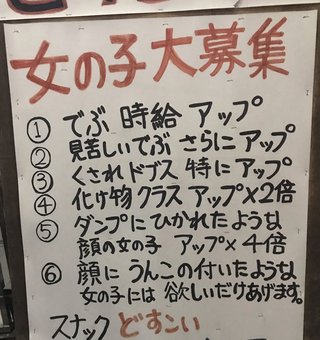 女の子大募集
① でぶ 時給 アップ
② 見苦しいでぶ さらに アップ
③ くされドブス 特に アップ
④ 化け物 クラス アップ×2倍
⑤ ダンプに ひかれたような
顔の女の子 アップ×4倍
⑥ 顔に うんこの付いたような
女の子には 欲しいだけあげます。
スナック どすこい